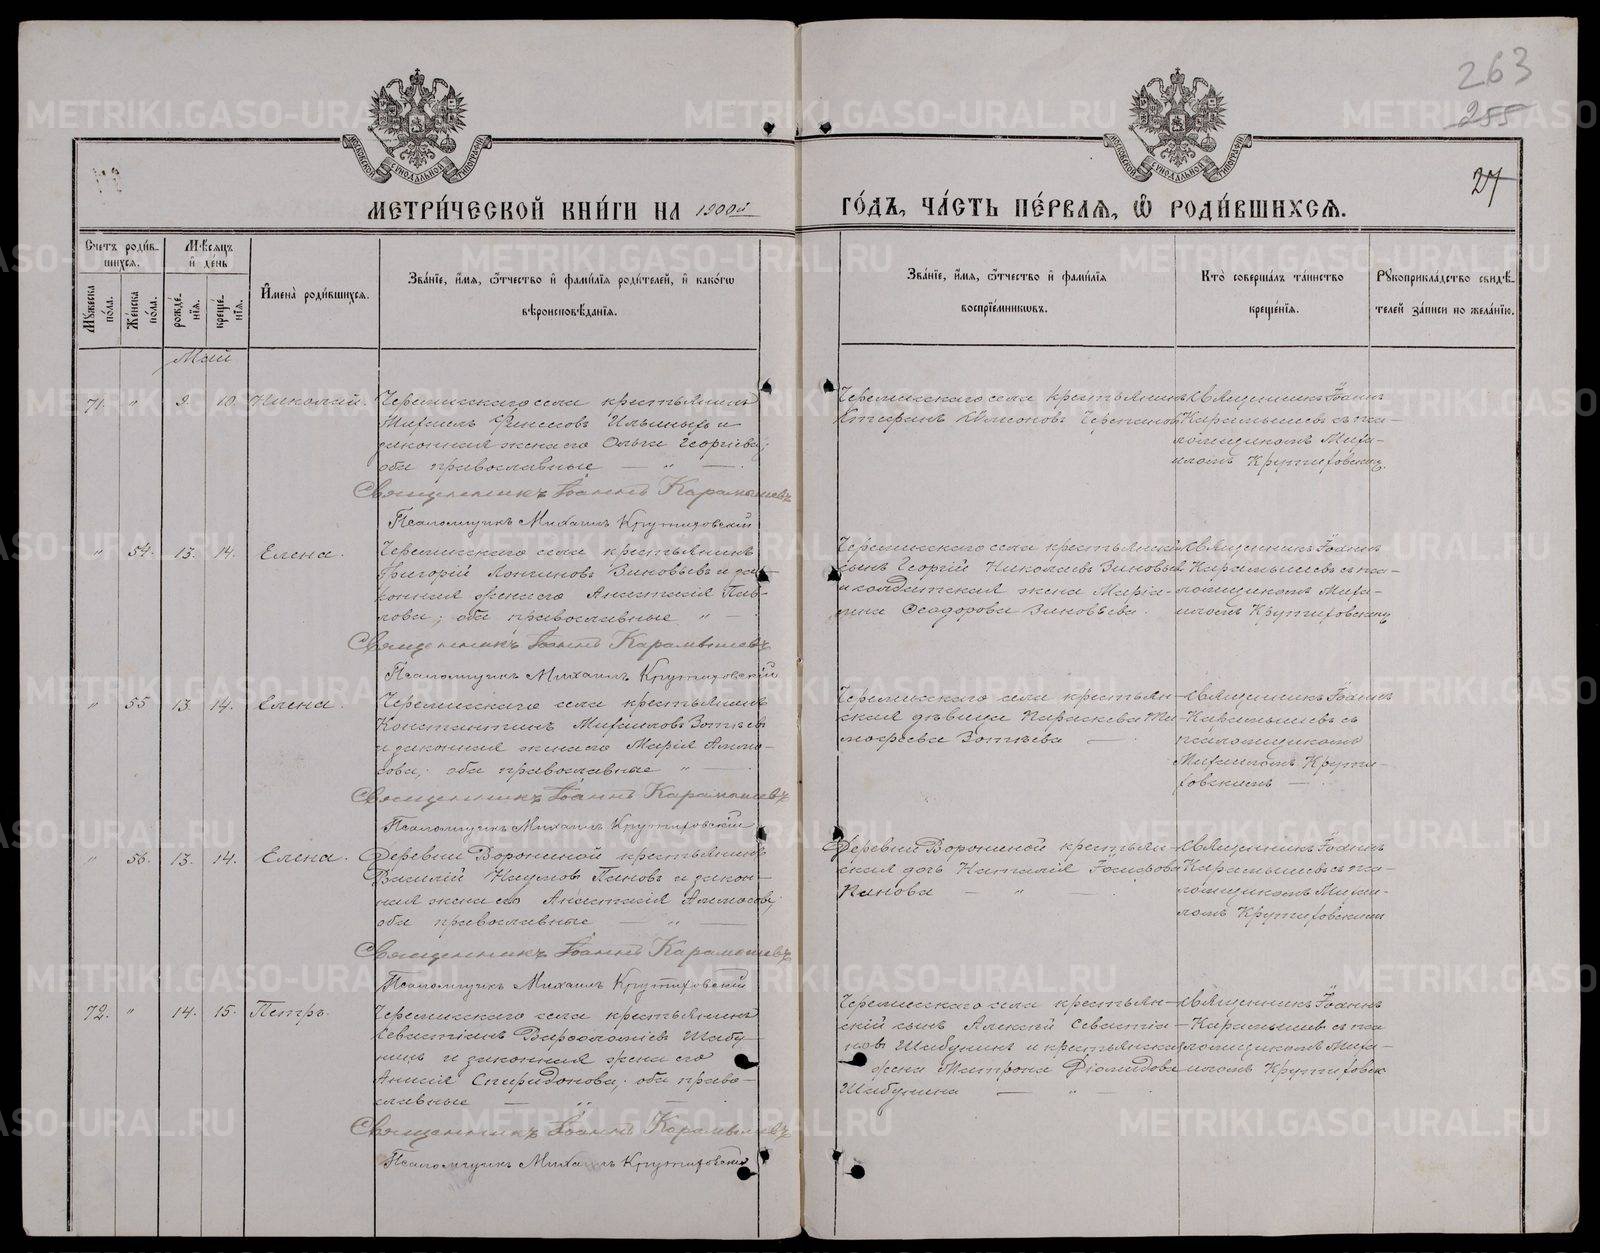 263
255
27
МЕТРИ́ЧЕСКОЙ КНИ́ГИ НА 1900й
ГО́ДЪ, ЧА́СТЬ ПЕ́РВАѦ, Ѿ РОДИ́ВШИХСѦ.
Счетъ роди́в-
шихся.
Мѣсяцъ
и де́нь
Мꙋ́жеска по́ла.
Же́нска по́ла.
рожде́-
нїя.
креще́-
нїя.
И҆мена̀ роди́вшихся.
Зва́нїе, и҆́мя, ѻ҆́тчество и҆ фами́лїя роди́телей, и҆ како́гѡ
вѣроисповѣ́данїя.
Зва́нїе, и҆́мя, ѻ҆́тчество и҆ фами́лїя
воспрїе́мниковъ.
Кто̀ соверша́лъ та́инство
креще́нїя.
Рꙋкоприкла́дство свидѣ́-
телей за́писи по жела́нїю.
Май
71. " 9. 10. Николай.
Черемисскаго села крестьянинъ
Михаилъ Ильиныхъ и
законная жена его Ольга Георгіева;
оба православные — " —
Священникъ Іоаннъ Карамышевъ
Псаломщикъ Михаилъ Крутиховскій
Черемисскаго села крестьянинъ
Черепановъ
Священникъ Іоаннъ
Карамышевъ съ пса-
ломщикомъ Миха-
иломъ Крутиховским
" 54. 13. 14. Елена.
Черемисскаго села крестьянинъ
Григорій Лонгиновъ Зиновьевъ и за-
конная жена его Анастасія Пав-
лова; оба православные " —
Священникъ Іоаннъ Карамышевъ
Псаломщикъ Михаилъ Крутиховскій
Черемисскаго села крестьянскій
сынъ Георгій Николаевъ Зиновьев
и солдатская жена Марі-
Феодорова Зиновьева.
Священникъ Іоаннъ
Карамышевъ съ пса-
ломщикомъ Миха-
иломъ Крутиховскимъ
" 55 13. 14. Елена.
Черемисскаго села крестьянинъ
Константинъ Михаиловъ Зотѣевъ
и законная жена его Марія Аммо-
сова; оба православные " —
Священникъ Іоаннъ Карамышевъ
Псаломщикъ Михаилъ Крутиховскій
Черемисскаго села крестьян-
ская дѣвица Параскева Ти-
мофеева Зотѣева —
Священникъ Іоаннъ
Карамышевъ съ
псаломщикомъ
Михаиломъ Крути-
ховскимъ —
" 56. 13. 14. Елена.
Деревни Ворониной крестьянинъ
Василій Наумовъ Пановъ и закон-
ная жена его Анастасія Аммосова;
оба православные — " —
Священникъ Іоаннъ Карамышевъ
Псаломщикъ Михаилъ Крутиховскій
Деревни Ворониной крестьян-
ская дочь Наталія Іосифова
Панова — " —
Священникъ Іоаннъ
Карамышевъ съ пса-
ломщикомъ Михаи-
ломъ Крутиховскимъ
72. " 14. 15. Петръ.
Черемисскаго села крестьянинъ
Севастіанъ Варфоломѣевъ Шабу-
нинъ и законная жена его
Анисія Спиридонова; оба право-
славные — " —
Священникъ Іоаннъ Карамышевъ
Псаломщикъ Михаилъ Крутиховскій
Черемисскаго села крестьян-
скій сынъ Алексій Севастіа-
новъ Шабунинъ и крестьянская
жена Матрона Діомидова
Шабунина — " —
Священникъ Іоаннъ
Карамышевъ съ пса-
ломщикомъ Миха-
иломъ Крутиховск